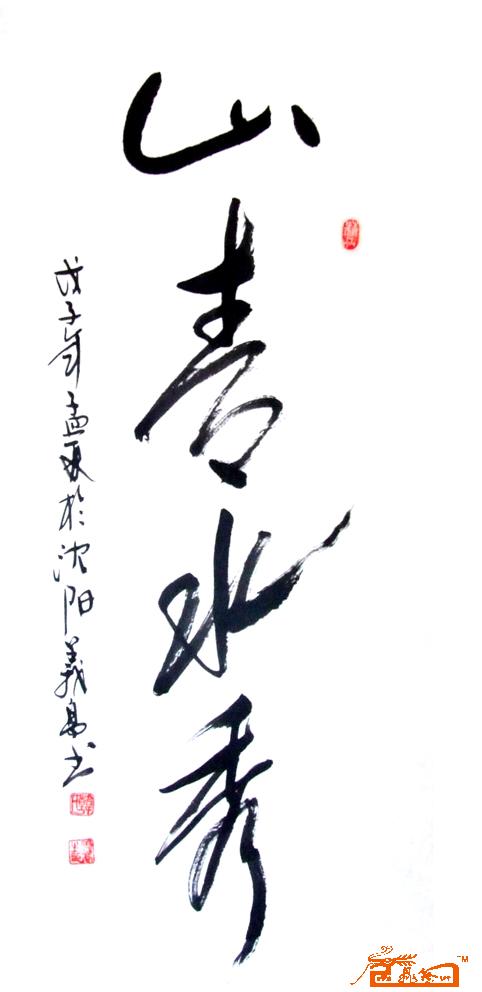 山青水秀
戊子年孟夏於沈阳義高书